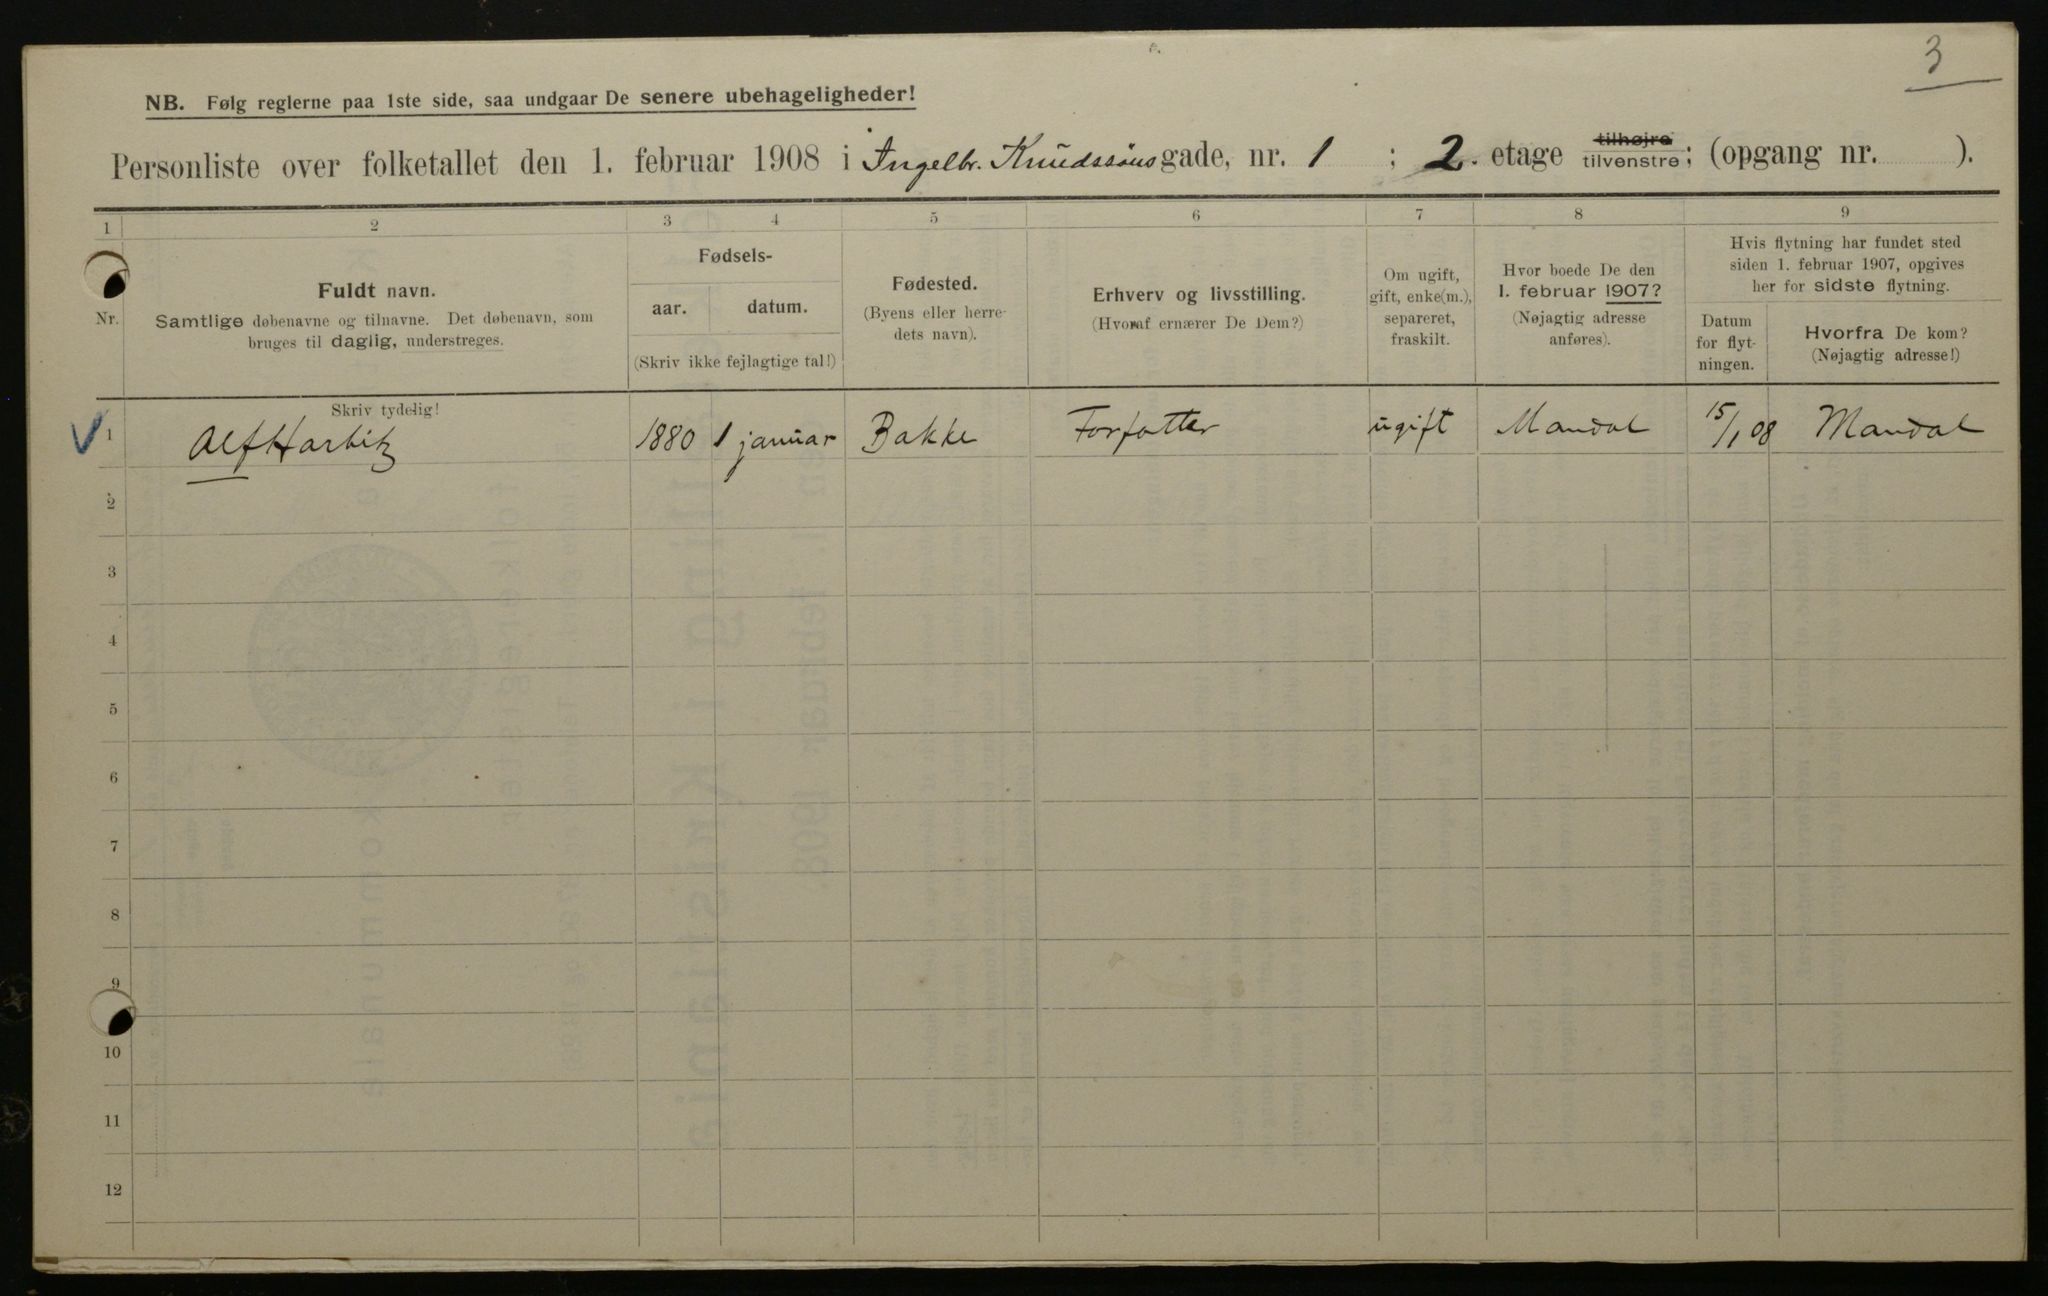 3
NB. Følg reglerne paa 1ste side, saa undgaar De senere ubehageligheder!
Personliste over folketallet den 1. februar 1908 i Ingelbr. Knudssøns gade, nr. 1 ; 2. etage tilhøjre tilvenstre; (opgang nr. ).
1 2 3 4 5 6 7 8 9
Nr.
Fuldt navn.
Samtlige døbenavne og tilnavne. Det døbenavn, som
bruges til daglig, understreges.
Skriv tydelig!
Fødsels-
aar. datum.
(Skriv ikke fejlagtige tal!)
Fødested.
(Byens eller herre-
dets navn).
Erhverv og livsstilling.
(Hvoraf ernærer De Dem?)
Om ugift,
gift, enke(m.),
separeret,
fraskilt.
Hvor boede De den
1. februar 1907?
(Nøjagtig adresse
anføres).
Hvis flytning har fundet sted
siden 1. februar 1907, opgives
her for sidste flytning.
Datum
for flyt-
ningen.
Hvorfra De kom?
(Nøjagtig adresse!)
1 Alf Harbitz 1880 1 januar Bakke Forfatter ugift Mandal 15/1 08 Mandal
2
3
4
5
6
7
8
9
10
11
12